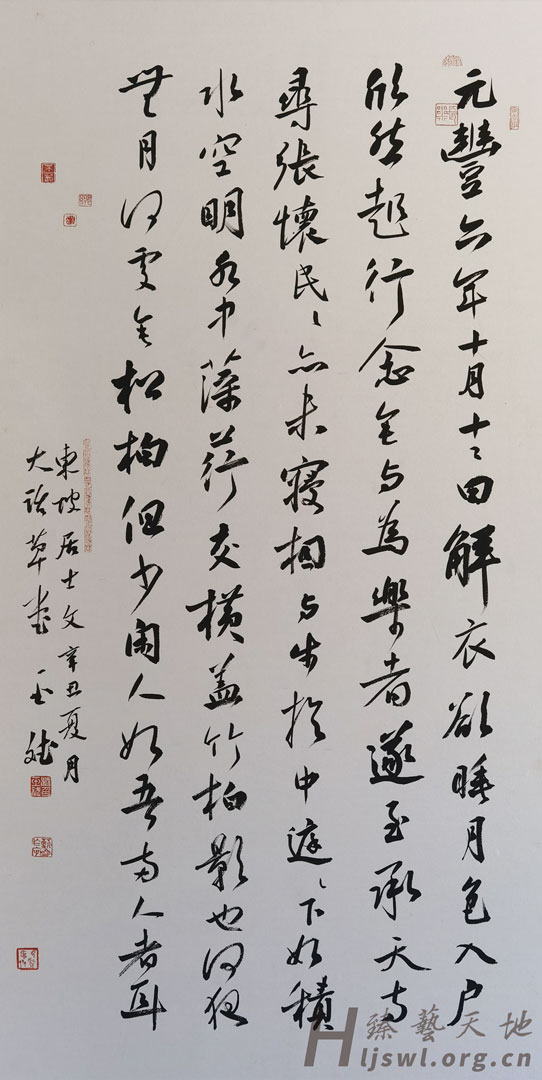 元豐六年十月十二日解衣欲睡月色入户
欣然起行念無与為樂者遂至承天寺
尋張懷民〻亦未寢相与步於中庭〻下如積
水空明水中藻荇交橫蓋竹柏影也何夜
無月何處無松柏但少閑人如吾兩人者耳
東坡居士文辛丑夏月
大詠草堂
臻藝天地
Hljswl.org.cn